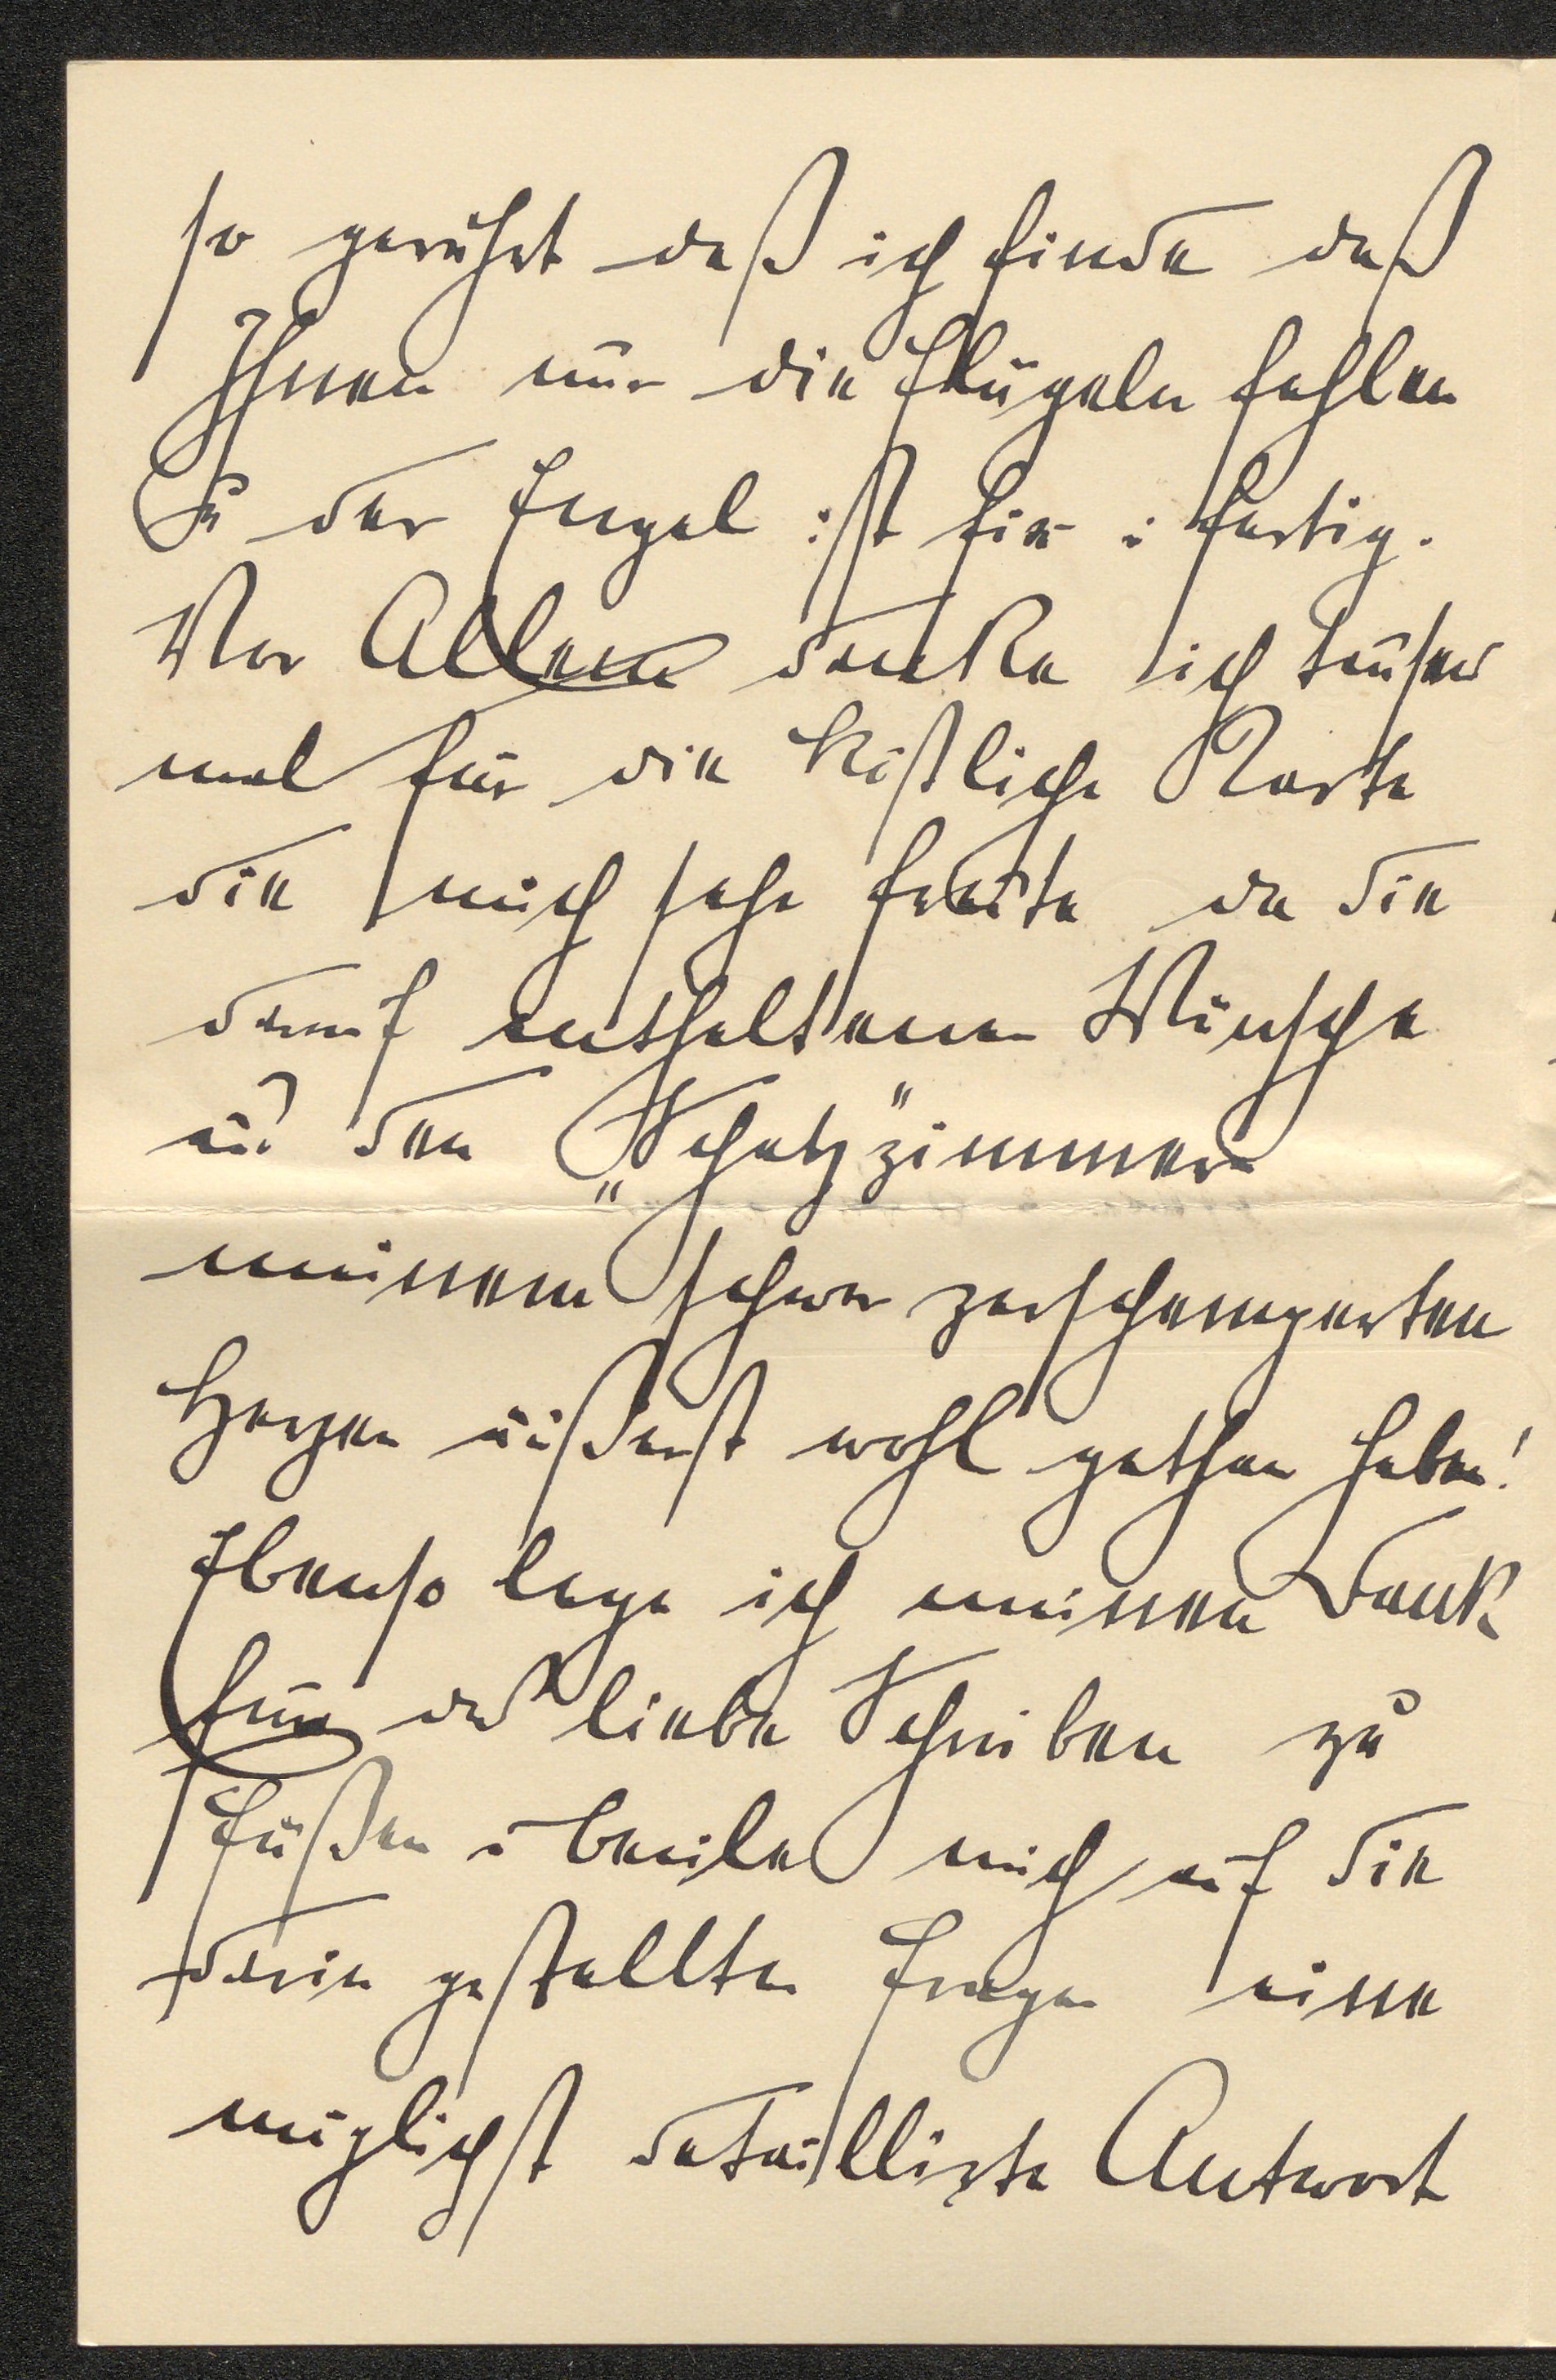 so gerührt daß ich finde daß
Ihnen nur die Flügeln fehlen
u der Engel ist fix u fertig.
Vor Allem danke ich tausend
mal für die köstliche Karte
die mich sehr freute da die
darauf enthaltenen Wünsche
aus den „Schatz"zimmern
meinem schwer zerschemperten
Herzen äußerst wohl gethan haben!
Ebenso lege ich meinen Dank
für das liebe Schreiben zu
Füßen u beeile mich auf die
darin gestellten Fragen eine
möglichst detaillirte Antwort